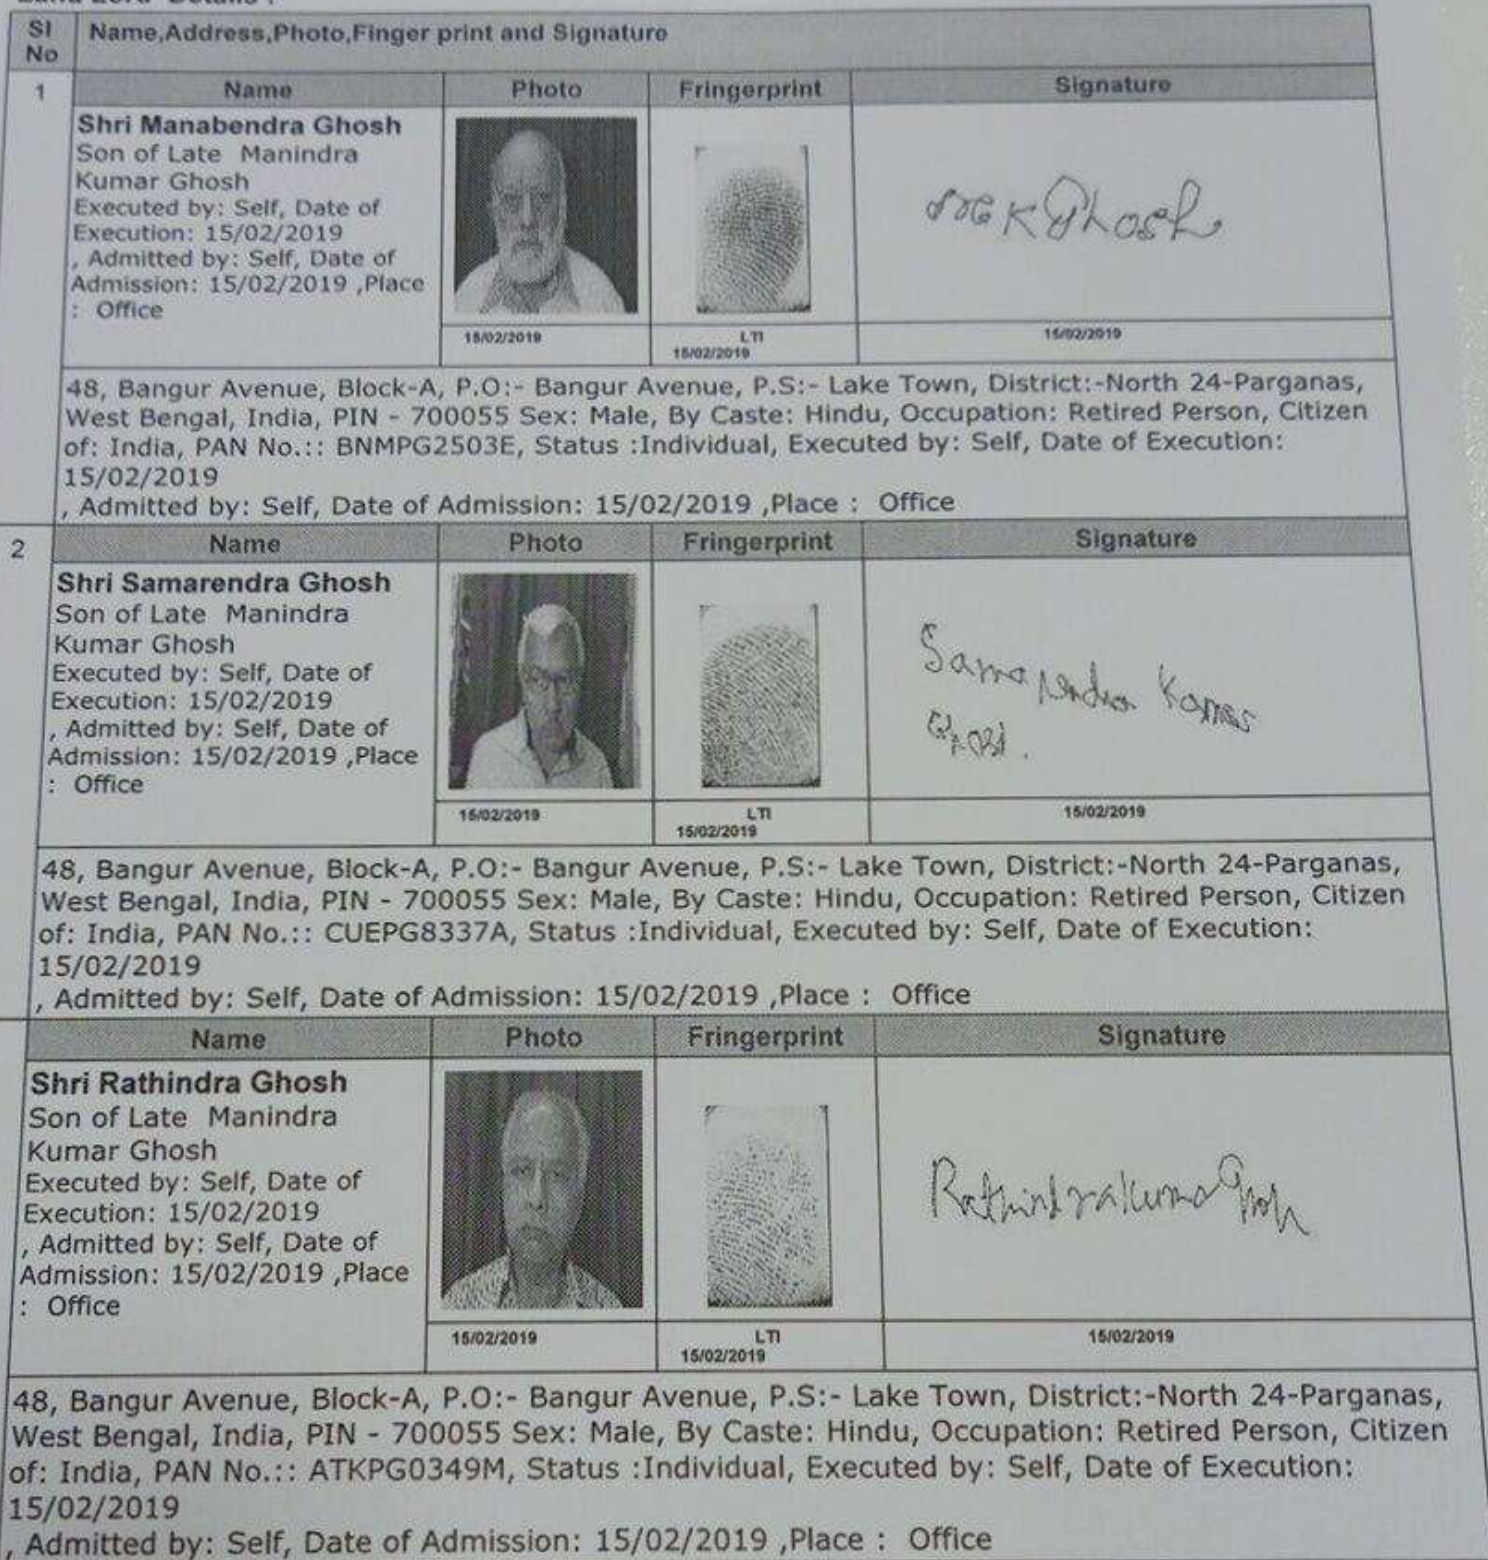 Sl No
Name,Address,Photo,Finger print and Signature
1
Name Photo Fringerprint Signature
Shri Manabendra Ghosh
Son of Late Manindra
Kumar Ghosh
Executed by: Self, Date of
Execution: 15/02/2019
, Admitted by: Self, Date of
Admission: 15/02/2019 ,Place
: Office
K Ghosh
15/02/2019
LTI
15/02/2019
15/02/2019
48, Bangur Avenue, Block-A, P.O:- Bangur Avenue, P.S:- Lake Town, District:-North 24-Parganas,
West Bengal, India, PIN - 700055 Sex: Male, By Caste: Hindu, Occupation: Retired Person, Citizen
of: India, PAN No.:: BNMPG2503E, Status :Individual, Executed by: Self, Date of Execution:
15/02/2019
, Admitted by: Self, Date of Admission: 15/02/2019 ,Place : Office
2
Name Photo Fringerprint Signature
Shri Samarendra Ghosh
Son of Late Manindra
Kumar Ghosh
Executed by: Self, Date of
Execution: 15/02/2019
, Admitted by: Self, Date of
Admission: 15/02/2019 ,Place
: Office
Samarendra Kumar
Ghosh.
15/02/2019
LTI
15/02/2019
15/02/2019
48, Bangur Avenue, Block-A, P.O:- Bangur Avenue, P.S:- Lake Town, District:-North 24-Parganas,
West Bengal, India, PIN - 700055 Sex: Male, By Caste: Hindu, Occupation: Retired Person, Citizen
of: India, PAN No.:: CUEPG8337A, Status :Individual, Executed by: Self, Date of Execution:
15/02/2019
, Admitted by: Self, Date of Admission: 15/02/2019 ,Place : Office
Name Photo Fringerprint Signature
Shri Rathindra Ghosh
Son of Late Manindra
Kumar Ghosh
Executed by: Self, Date of
Execution: 15/02/2019
, Admitted by: Self, Date of
Admission: 15/02/2019 ,Place
: Office
Rathindrakumar Ghosh
15/02/2019
LTI
15/02/2019
15/02/2019
48, Bangur Avenue, Block-A, P.O:- Bangur Avenue, P.S:- Lake Town, District:-North 24-Parganas,
West Bengal, India, PIN - 700055 Sex: Male, By Caste: Hindu, Occupation: Retired Person, Citizen
of: India, PAN No.:: ATKPG0349M, Status :Individual, Executed by: Self, Date of Execution:
15/02/2019
, Admitted by: Self, Date of Admission: 15/02/2019 ,Place : Office